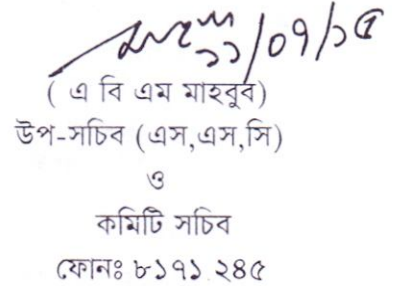 ১১/০৭/১৫
( এ বি এম মাহবুব)
উপ-সচিব (এস,এস,সি)
ও
কমিটি সচিব
ফোনঃ ৮১৭১ ২৪৫